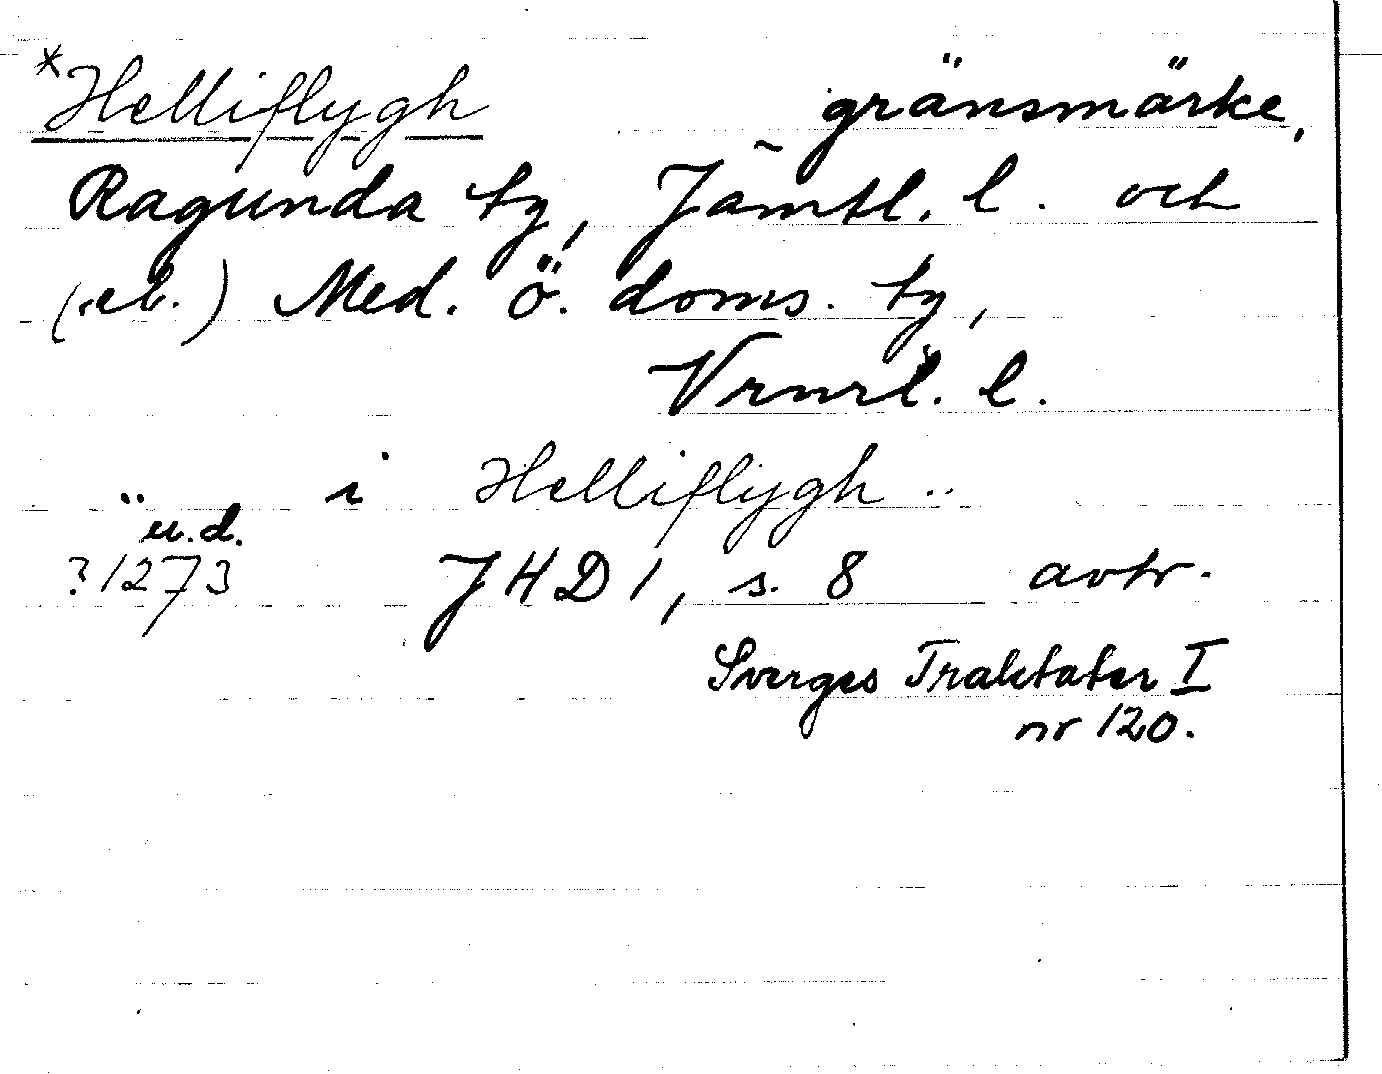 *Helliflygh gränsmärke,
Ragunda tg, Jämtl. l. och
(eb.) Med. ö. doms. tg,
Vrnrl. l.
.. i Helliflygh ..
u.d.
?1273 JHD 1, s. 8 avtr.
Sverges Traktater I
nr 120.